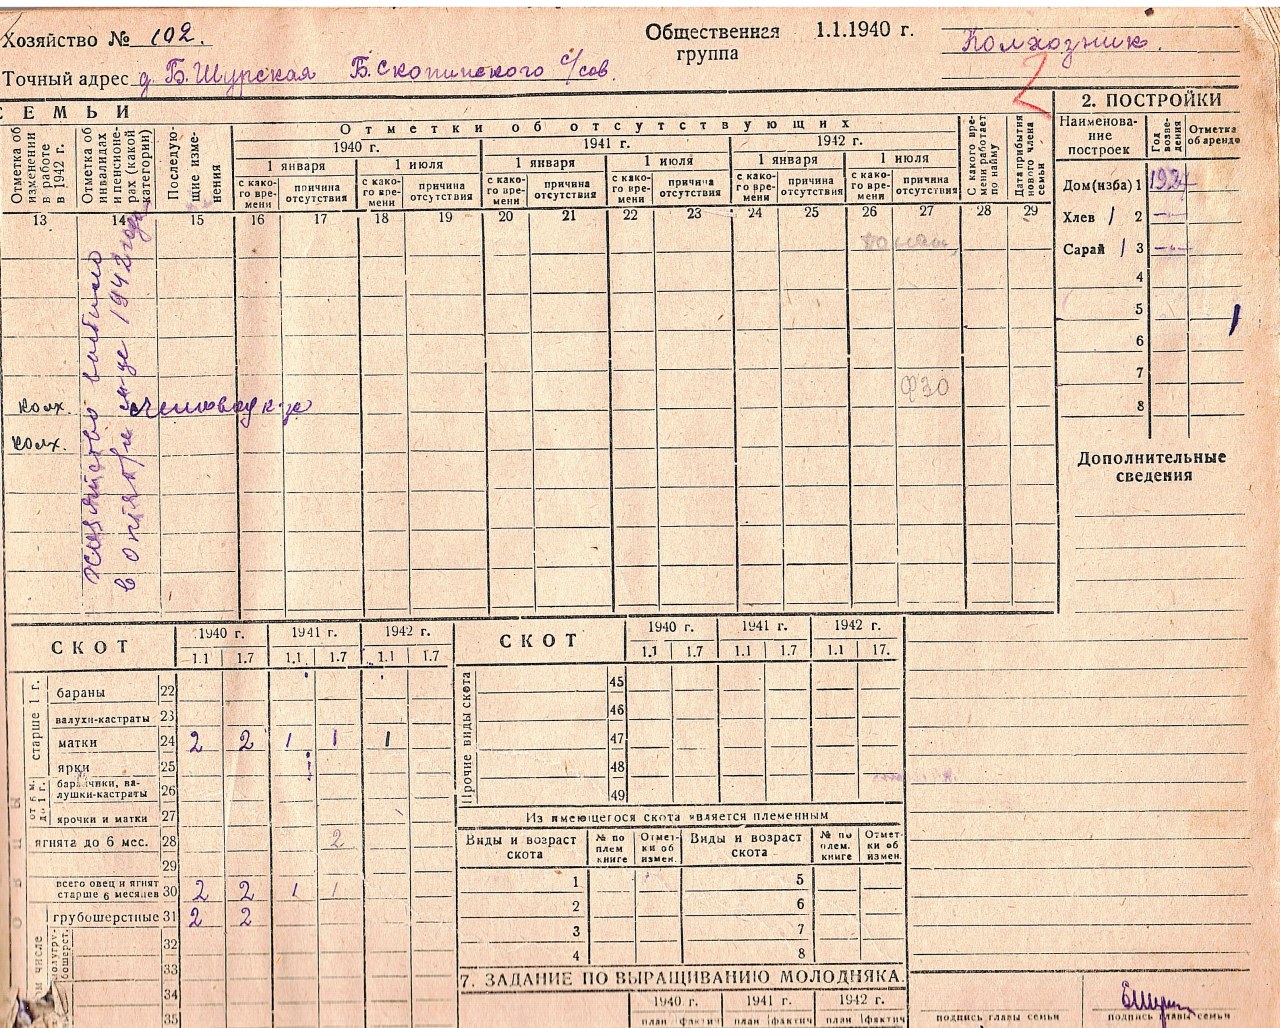 Хозяйство № 102.
Общественная группа 1.1.1940 г. Колхозник.
Точный адрес д. Б. Шурская Б. Скопинского с/сов.
СЕМЬИ
Отметка об изменении в работе в 1942 г.
Отметка об инвалидах и пенсионерах (какой категории)
Последующие изменения
Отметки об отсутствующих
1940 г. 1941 г. 1942 г.
1 января 1 июля 1 января 1 июля 1 января 1 июля
с какого времени причина отсутствия с какого времени причина отсутствия с какого времени причина отсутствия с какого времени причина отсутствия с какого времени причина отсутствия с какого времени причина отсутствия
С какого времени работает по найму
Дата прибытия нового члена семьи
13 14 15 16 17 18 19 20 21 22 23 24 25 26 27 28 29
хозяйство выбыло
в октябре м-це 1942 года
ФЗО
колх.
колх.
2. ПОСТРОЙКИ
Наименование построек Год возведения Отметка об аренде
Дом (изба) 1
Хлев / 2 —
Сарай / 3 —
4
5
6
7
8
Дополнительные сведения
СКОТ 1940 г. 1941 г. 1942 г.
1.1 1.7 1.1 1.7 1.1 1.7
старше 1 г.
бараны 22
валухи-кастраты 23
матки 24 2 2 1 1 1
ярки 25
от 6 м. до 1 г.
баранчики, валушки-кастраты 26
ярочки и матки 27
ягнята до 6 мес. 28 2
29
всего овец и ягнят старше 6 месяцев 30 2 2 1 1
грубошерстные 31 2 2
полугрубошерст.
32
33
34
35
СКОТ 1940 г. 1941 г. 1942 г.
1.1 1.7 1.1 1.7 1.1 17.
Прочие виды скота
45
46
47
48
49
Из имеющегося скота является племенным
Виды и возраст скота № по плем книге Отметки об измен. Виды и возраст скота № по плем. книге Отметки об измен.
1 5
2 6
3 7
4 8
7. ЗАДАНИЕ ПО ВЫРАЩИВАНИЮ МОЛОДНЯКА
1940 г. 1941 г. 1942 г.
план фактич план фактич план фактич
подпись главы семьи подпись главы семьи